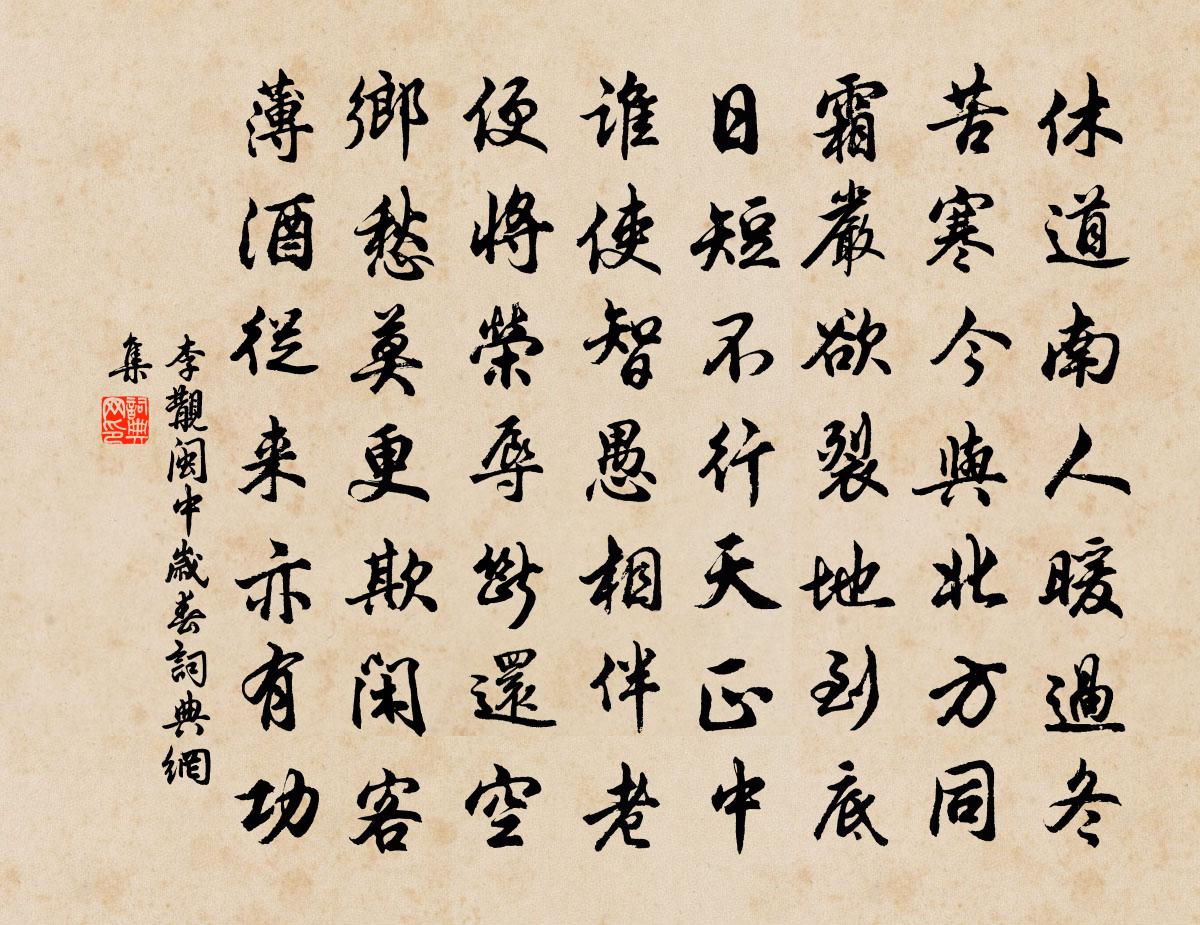 休道南人暖過冬
苦寒今與北方同
霜嚴欲裂地到底
日短不行天正中
誰使智愚相伴老
便將榮辱斷還空
鄉愁莫更欺閑客
薄酒從来亦有功
李覯閩中歲暮詞典網
集
詞典
网印